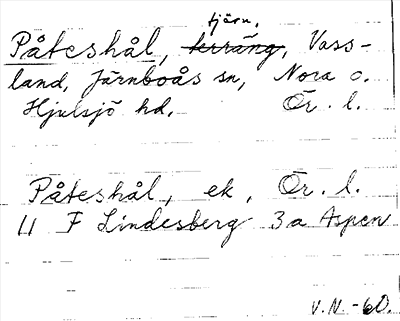 tjärn,
Påteshål, terräng, Vass-
land, Järnboås sn, Nora o.
Hjulsjö hd. Ör. l.
Påteshål, ek, Ör. l.
11 F Lindesberg 3a Aspen
V.N. -60.